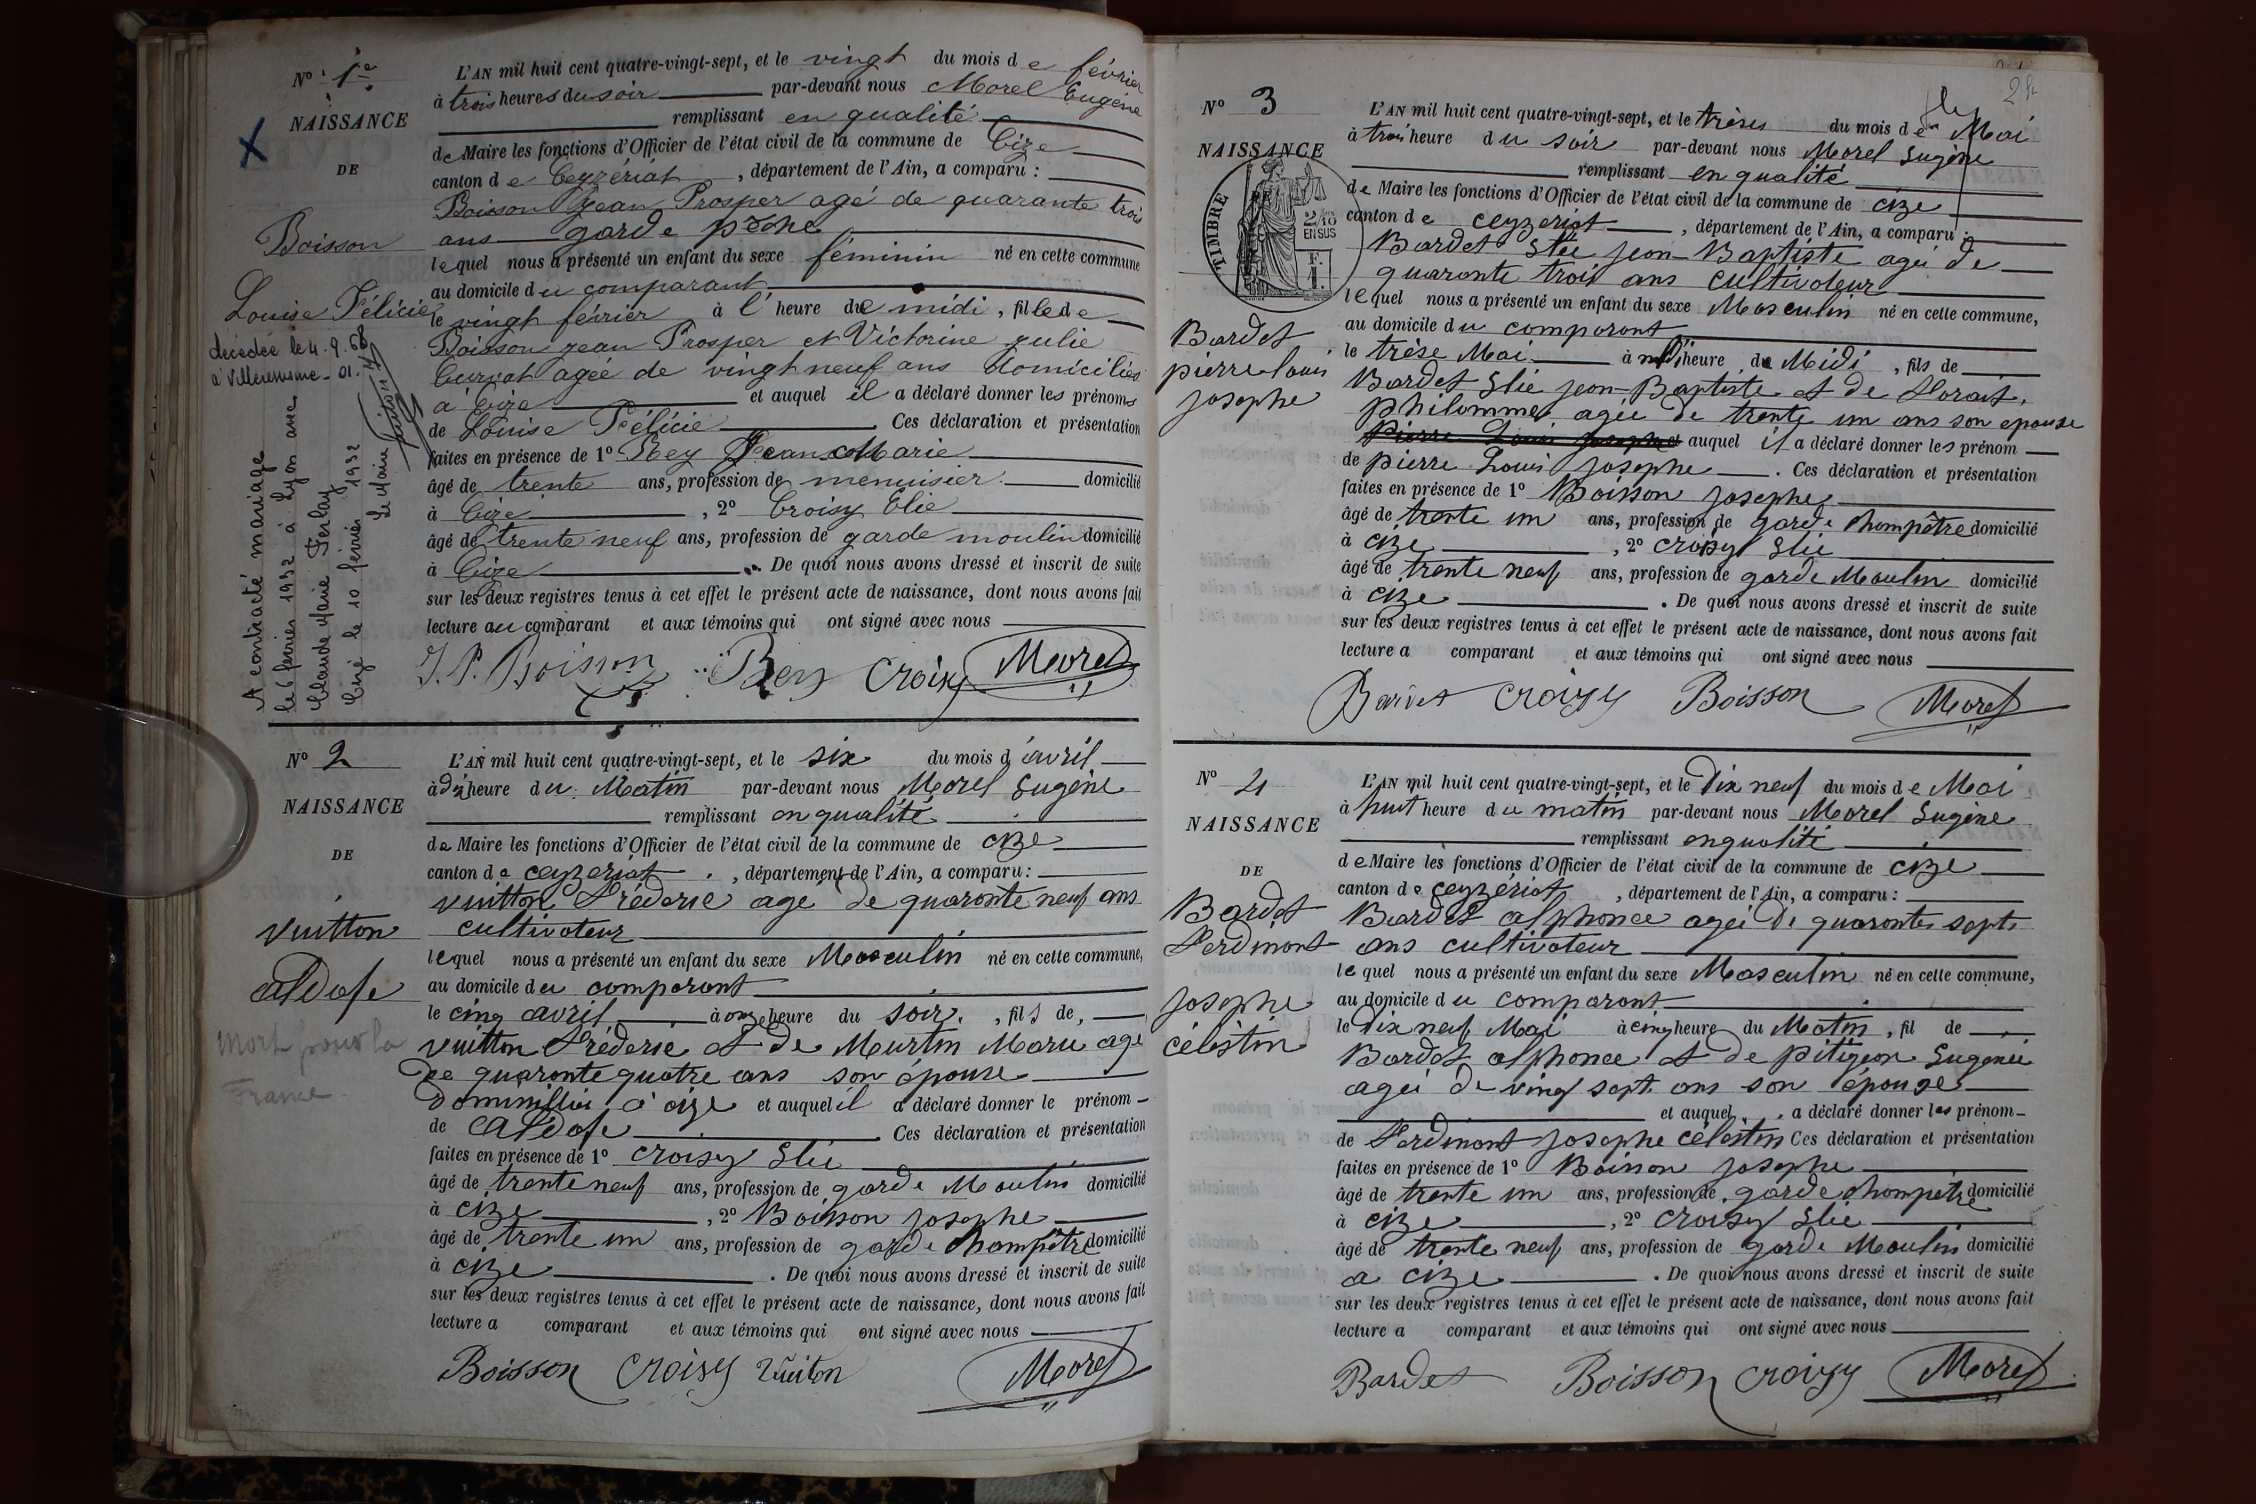 N° 1er
NAISSANCE
DE
Boisson
Louise Félicie
décédée le 4.9.68
à Villereversure - 01.
Le Maire
A contracté mariage
le 6 février 1932 à Lyon avec
Claude Marie Ferlay
Cize le 10 février 1932
Le Maire
L'AN mil huit cent quatre-vingt-sept, et le vingt du mois de février
à trois heures du soir par-devant nous Morel Eugène
remplissant en qualité
de Maire les fonctions d'Officier de l'état civil de la commune de Cize
canton de Ceyzériat, département de l'Ain, a comparu :
Boisson Jean Prosper agé de quarante trois
ans garde pêche
lequel nous a présenté un enfant du sexe féminin né en cette commune
au domicile du comparant
le vingt février à l' heure de midi, fille de
Boisson Jean Prosper et Victorine Julie
agée de vingt neuf ans domiciliés
à Cize et auquel il a déclaré donner les prénoms
de Louise Félicie Ces déclaration et présentation
faites en présence de 1° Rey Jean Marie
âgé de trente ans, profession de menuisier domicilié
à Cize, 2° Croisy Elie
âgé de trente neuf ans, profession de garde moulin domicilié
à Cize. De quoi nous avons dressé et inscrit de suite
sur les deux registres tenus à cet effet le présent acte de naissance, dont nous avons fait
lecture au comparant et aux témoins qui ont signé avec nous
J. P. Boisson Rey Croisy Morel
N° 2
NAISSANCE
DE
Vuitton
Aldofe
Mort pour la
France
L'AN mil huit cent quatre-vingt-sept, et le six du mois d'avril
à dix heure du Matin par-devant nous Morel Eugène
remplissant en qualité
de Maire les fonctions d'Officier de l'état civil de la commune de Cize
canton de ceyzeriat, département de l'Ain, a comparu :
vuitton Fréderic age de quarante neuf ans
cultivateur
lequel nous a présenté un enfant du sexe Masculin né en cette commune,
au domicile du comparant
le cinq avril à onze heure du soir, fils de,
vuitton Fréderic et de Murtin Marie age
de quarante quatre ans son épouse
à cize et auquel il a déclaré donner le prénom
de Aldofe Ces déclaration et présentation
faites en présence de 1° croisy Elie
âgé de trente neuf ans, profession de garde Moulin domicilié
à cize, 2° Boisson josephe
âgé de trente un ans, profession de garde champêtre domicilié
à cize. De quoi nous avons dressé et inscrit de suite
sur les deux registres tenus à cet effet le présent acte de naissance, dont nous avons fait
lecture a comparant et aux témoins qui ont signé avec nous
Boisson Croisy Vuiton Morel
N° 3
NAISSANCE
TIMBRE
2/10
EN SUS
F.
1.
Bardet
pierre louis
josephe
L'AN mil huit cent quatre-vingt-sept, et le trèse du mois de Mai
à trois heure du soir par-devant nous Morel Eugène
remplissant en qualité
de Maire les fonctions d'Officier de l'état civil de la commune de cize
canton de ceyzeriat, département de l'Ain, a comparu :
Bardet Elie jean-Baptiste agé de
quarante trois ans cultivateur
lequel nous a présenté un enfant du sexe Masculin né en cette commune,
au domicile du comparant
le trèse Mai à midi heure de Midi, fils de
Bardet Elie jean-Baptiste et de
philomme agée de trente un ans son epouse
Pierre Louis Josephe auquel il a déclaré donner les prénom
de pierre Louis josephe. Ces déclaration et présentation
faites en présence de 1° Boisson josephe
âgé de trente un ans, profession de garde champêtre domicilié
à cize, 2° croisy Elie
âgé de trente neuf ans, profession de garde Moulin domicilié
à cize. De quoi nous avons dressé et inscrit de suite
sur les deux registres tenus à cet effet le présent acte de naissance, dont nous avons fait
lecture a comparant et aux témoins qui ont signé avec nous
Bardet Croisy Boisson Morel
N° 4
NAISSANCE
DE
Bardet
Ferdinont
josephe
célestin
L'AN mil huit cent quatre-vingt-sept, et le Dix neuf du mois de Mai
à huit heure du matin par-devant nous Morel Eugène
remplissant en qualité
de Maire les fonctions d'Officier de l'état civil de la commune de cize
canton de ceyzériat, département de l'Ain, a comparu :
Bardet alphonce agé de quarante sept
ans cultivateur
lequel nous a présenté un enfant du sexe Masculin né en cette commune,
au domicile du comparant
le Dix neuf Mai à cinq heure du Matin, fil de
Bardet alphonce et de pitigeon Eugenie
agée de vingt sept ans son épouse
et auquel a déclaré donner les prénom
de Ferdinont josephe célestin Ces déclaration et présentation
faites en présence de 1° Boisson josephe
âgé de trente un ans, profession de garde champêtre domicilié
à cize, 2° croisy Elie
âgé de trente neuf ans, profession de garde Moulin domicilié
a cize. De quoi nous avons dressé et inscrit de suite
sur les deux registres tenus à cet effet le présent acte de naissance, dont nous avons fait
lecture a comparant et aux témoins qui ont signé avec nous
Bardet Boisson Croisy Morel